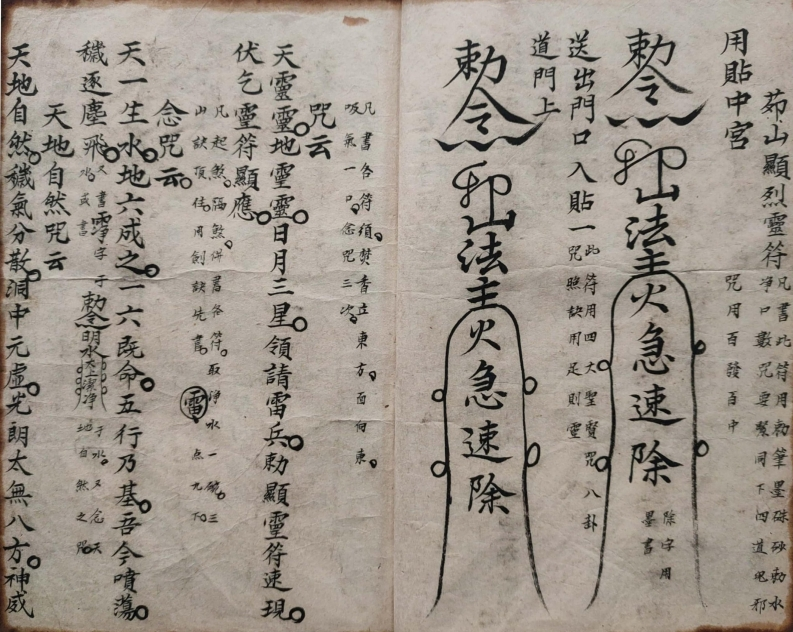 茆山顯烈靈符
凡書此符用勅筆墨硃砂勅水
淨口數咒要緊同下四道鬼邪
用貼中宮
咒用百發百中
勅令
卬山法主火急速除
除字用
墨書
送出門口入貼一
此符用四大聖賢咒八卦
咒照訣用足則靈
道門上
勅令
卬山法主火急速除
凡書各符須焚香立東方面向東
吸氣一口念咒三次
咒云
天靈靈地靈靈日月三星領請雷兵勅顯靈符速現
伏乞靈符顯應
凡起煞隔煞併書各符取淨水一碗三
山訣頂住用劍訣先書雷点九下
念咒云
天一生水地六成之一六既命五行乃基吾今噴蕩
穢逐塵飛
又書淨字于
水或書
勅令明水
潔淨
于水又念天
地自然之咒
天地自然咒云
天地自然穢氣分散洞中元虛光朗太無八方神威